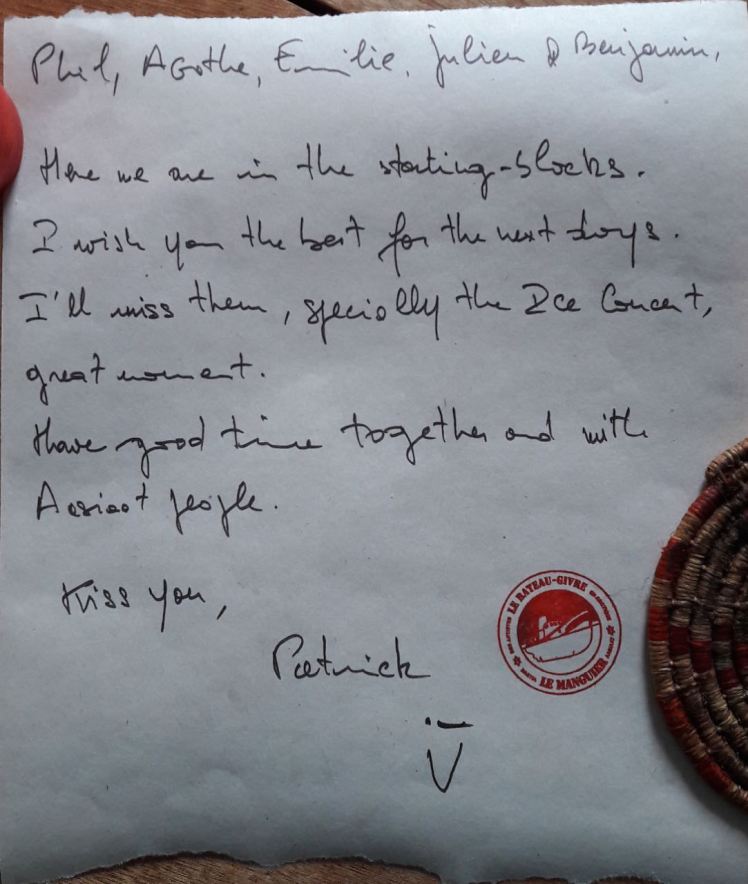 Phil, Agathe, Emilie, Julien & Benjamin,
Here we are in the starting-blocks.
I wish you the best for the next days.
I'll miss them, specially the Ice Concert,
great moment.
Have good time together and with
Aasiaat people.
Kiss you,
Patrick
LE BATEAU-GIVRE
LE MANGUIER